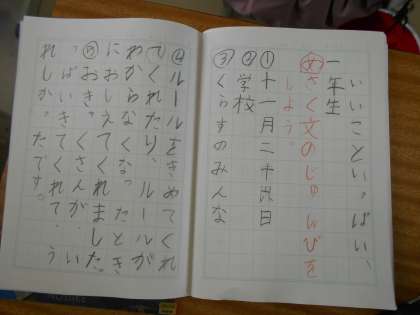 いいこといっぱい、
一年生
めさく文のじゅんびを
しよう。
①十一月二十九日
②学校
③くらすのみんな
④ルールをきめてくれ
てくれたり、ルールが
わからなくなったとき
におしえてくれました。
⑤おきゃくさんが、い
っぱいきてくれて、う
れしかったです。